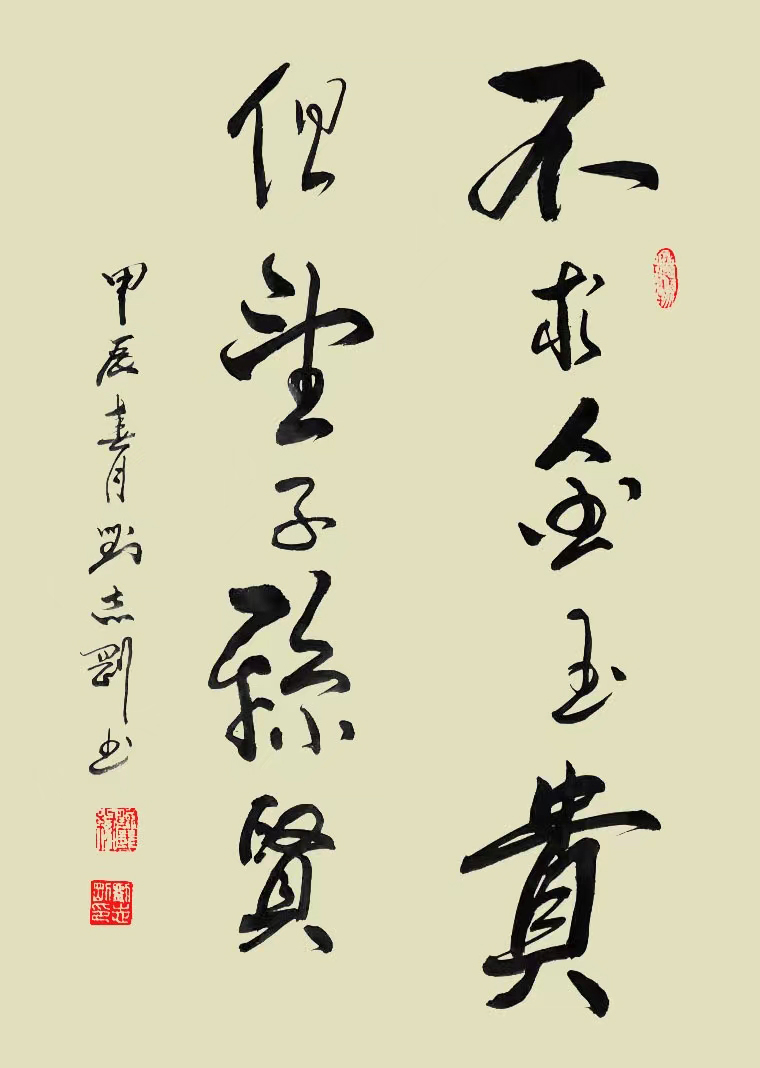 不求金玉貴
但望子孫賢
甲辰春月劉志剛書